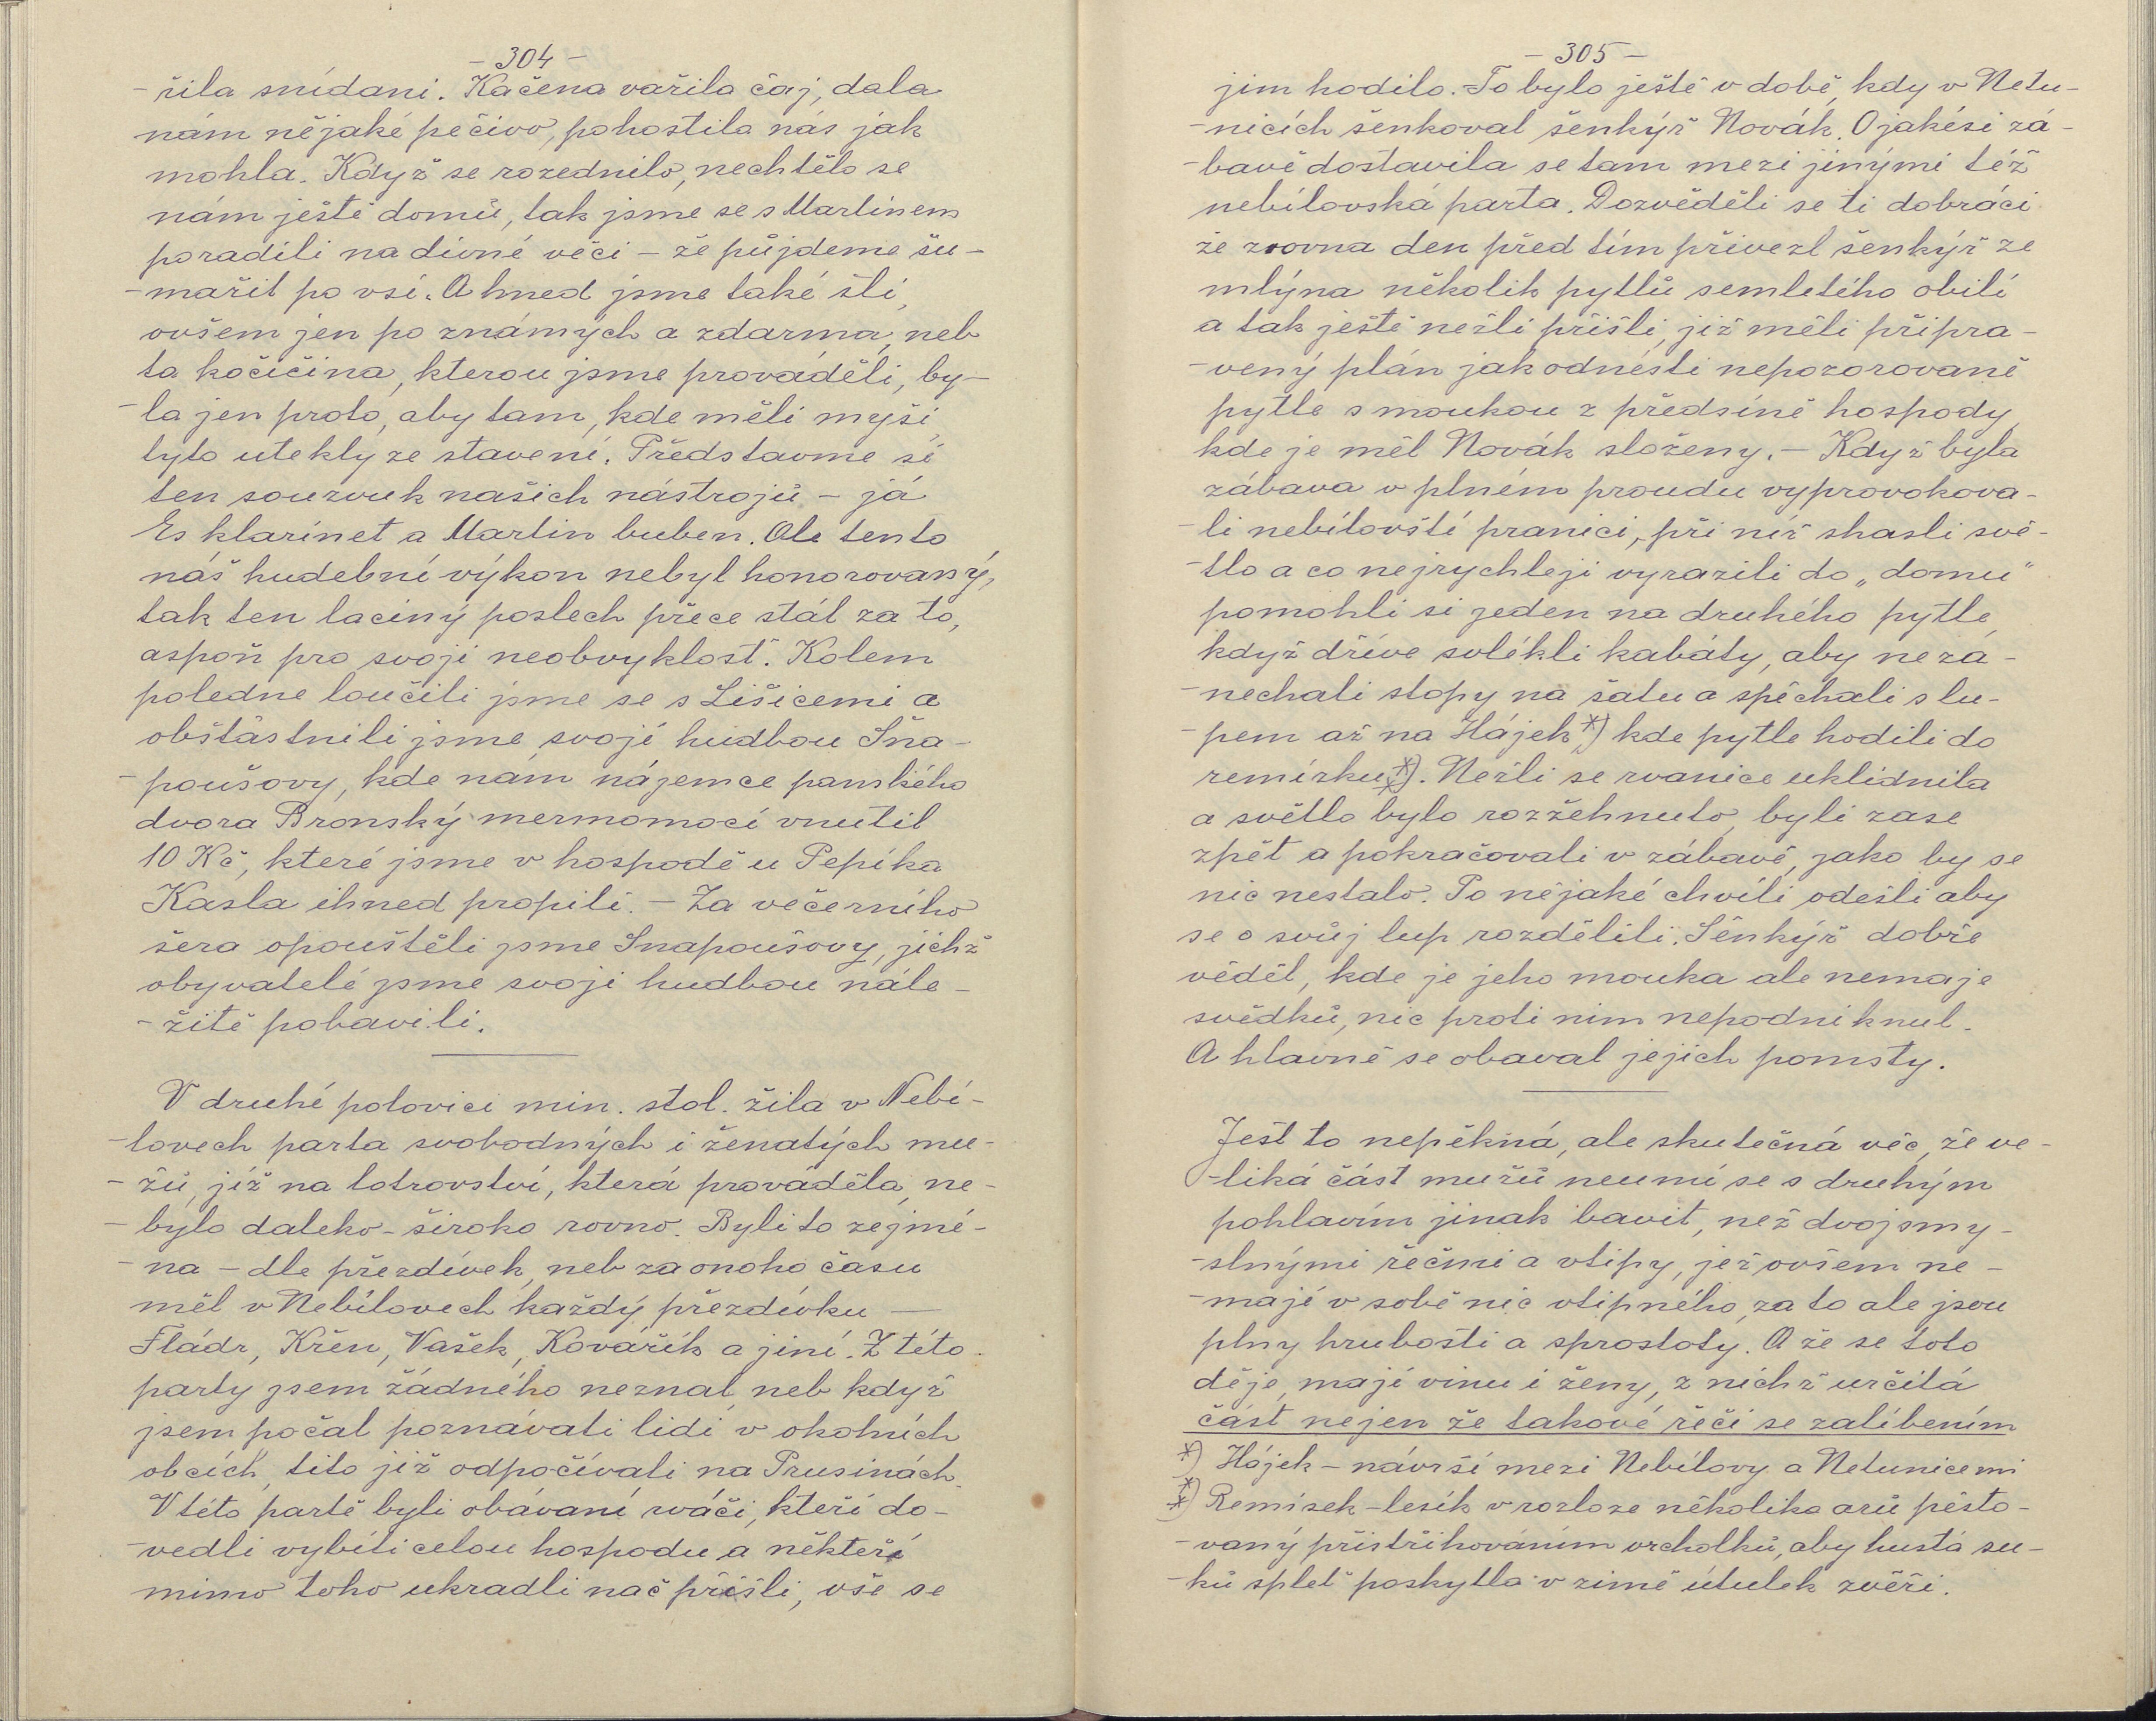 - 304 -
-řila snídani. Kačena vařila čaj, dala
nám nějaké pečivo, pohostila nás jak
mohla. Když se rozednilo, nechtělo se
nám ještě domů, tak jsme se s Martinem
poradili na divné věci - že půjdeme šu-
-mařit po vsi. A hned jsme také šli,
ovšem jen po známých a zdarma, neb
ta kočičina, kterou jsme prováděli, by-
-la jen proto, aby tam, kde měli myši,
tyto utekly ze stavení. Představme si
ten souzvuk našich nástrojů - já
Es klarinet a Martin buben. Ale tento
náš hudební výkon nebyl honorovaný,
tak ten laciný poslech přece stál za to,
aspoň pro svoji neobvyklost. Kolem
poledne loučili jsme se s Lišicemi a
obšťástnili jsme svojí hudbou Sna-
-poušovy, kde nám nájemce panského
dvora Bronský mermomocí vnutil
10 Kč, které jsme v hospodě u Pepíka
Kasla ihned propili. - Za večerního
šera opouštěli jsme Snapoušovy, jichž
obyvatelé jsme svojí hudbou nále-
-žitě pobavili.
V druhé polovici min. stol. žila v Nebí-
-lovech parta svobodných i ženatých mu-
-žů, jíž na lotrovství, která prováděla, ne-
-bylo daleko-široko rovno. Byli to zejmé-
-na - dle přezdívek, neb za onoho času
měl v Nebílovech každý přezdívku -
Fládr, Křen, Vašek, Kovářík a jiní. Z této
party jsem žádného neznal, neb když
jsem počal poznávati lidi v okolních
obcích, tito již odpočívali na Prusinách.
V této partě byli obávaní rváči, kteří do-
-vedli vybíti celou hospodu a někteří
mimo toho ukradli nač přišli, vše se
- 305 -
jim hodilo. - To bylo ještě v době, kdy v Netu-
-nicích šenkoval šenkýř Novák. O jakési zá-
-bavě dostavila se tam mezi jinými též
nebílovská parta. Dozvěděli se ti dobráci
že zrovna den před tím přivezl šenkýř ze
mlýna několik pytlů semletého obilí
a tak ještě nežli přišli, již měli připra-
-vený plán jak odnésti nepozorovaně
pytle s moukou z předsíně hospody,
kde je měl Novák složeny. - Když byla
zábava v plném proudu vyprovokova-
-li nebílovští pranici, při níž shasli svě-
-tlo a co nejrychleji vyrazili do „domu"
pomohli si jeden na druhého pytle,
když dříve svlékli kabáty, aby neza-
-nechali stopy na šatu a spěchali s lu-
-pem až na Hájek *) kde pytle hodili do
remízku **). Nežli se rvanice uklidnila
a světlo bylo rozžehnuto, byli zase
zpět a pokračovali v zábavě, jako by se
nic nestalo. Po nějaké chvíli odešli aby
se o svůj lup rozdělili. Šenkýř dobře
věděl, kde je jeho mouka ale nemaje
svědků, nic proti nim nepodniknul.
A hlavně se obával jejich pomsty.
Jest to nepěkná, ale skutečná věc, že ve-
-liká část mužů neumí se s druhým
pohlavím jinak bavit, než dvojsmy-
-slnými řečmi a vtipy, jež ovšem ne-
-mají v sobě nic vtipného, za to ale jsou
plny hrubosti a sprostoty. A že se toto
děje, mají vinu i ženy, z nichž určitá
část nejen že takové řeči se zalíbením
*) Hájek - návrší mezi Nebílovy a Netunicemi
**) Remízek - lesík v rozloze několika arů pěsto-
-vaný přistřihováním vrcholků, aby hustá su-
-ků spleť poskytla v zimě útulek zvěři.